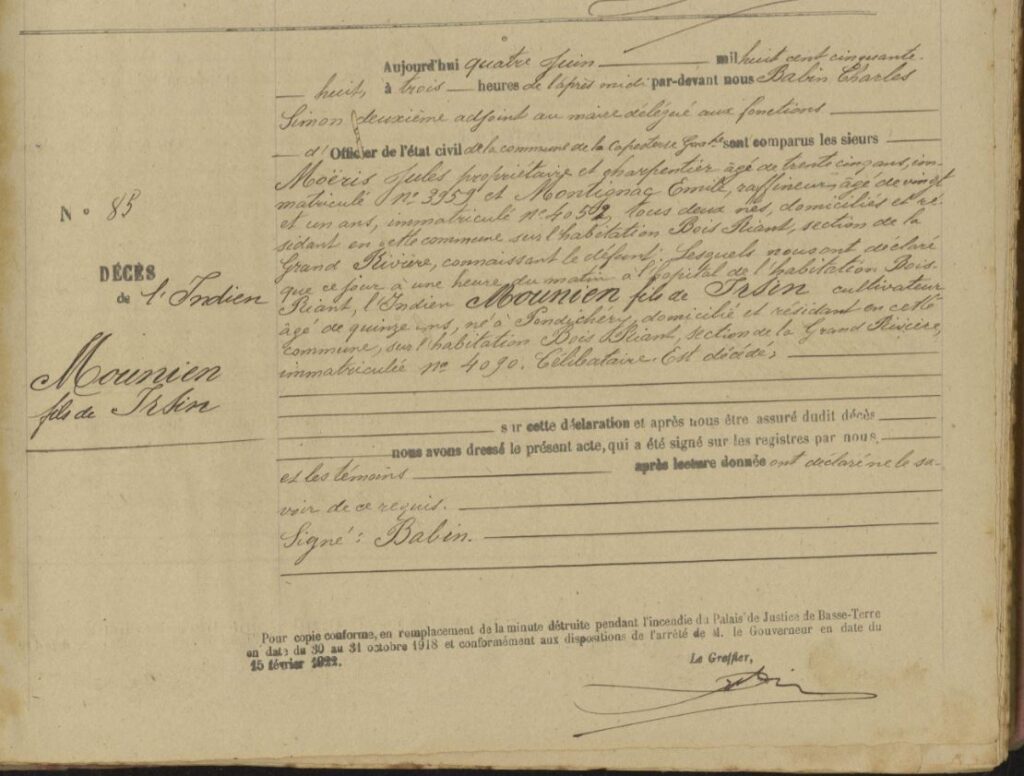 Aujourd'hui quatre Juin mil huit cent cinquante
huit, à trois heures de l'après midi par-devant nous Babin Charles
Simon deuxième adjoint au maire délégué aux fonctions
d'Officier de l'état civil de la commune de la Capesterre sont comparus les sieurs
Moëris Jules propriétaire et charpentier âgé de trente cinq ans, im-
matriculé N° 3959 et Montignac Emile, raffineur âgé de vingt
et un ans, immatriculé N° 4052, tous deux nés, domiciliés et ré-
sidant en cette commune sur l'habitation Bois Riant, section de la
Grand Rivière, connaissant le défunt; Lesquels nous ont déclaré
que ce jour à une heure du matin à l'hôpital de l'habitation Bois
Riant, l'Indien Mounien fils de Irsin cultivateur
âgé de quinze ans, né à Pondichery, domicilié et résidant en cette
commune, sur l'habitation Bois Riant, section de la Grand Rivière,
immatriculée N° 4090. Célibataire. Est décédé;
N° 85
DÉCÈS
de l'Indien
Mounien
fils de Irsin
sur cette déclaration et après nous être assuré dudit décès
nous avons dressé le présent acte, qui a été signé sur les registres par nous,
et les témoins après lecture donnée ont déclaré ne le sa-
voir de ce requis.
Signé: Babin.
Pour copie conforme, en remplacement de la minute détruite pendant l'incendie du Palais de Justice de Basse-Terre
en date du 30 au 31 octobre 1918 et conformément aux dispositions de l'arrêté de M. le Gouverneur en date du
15 février 1922.
Le Greffier,